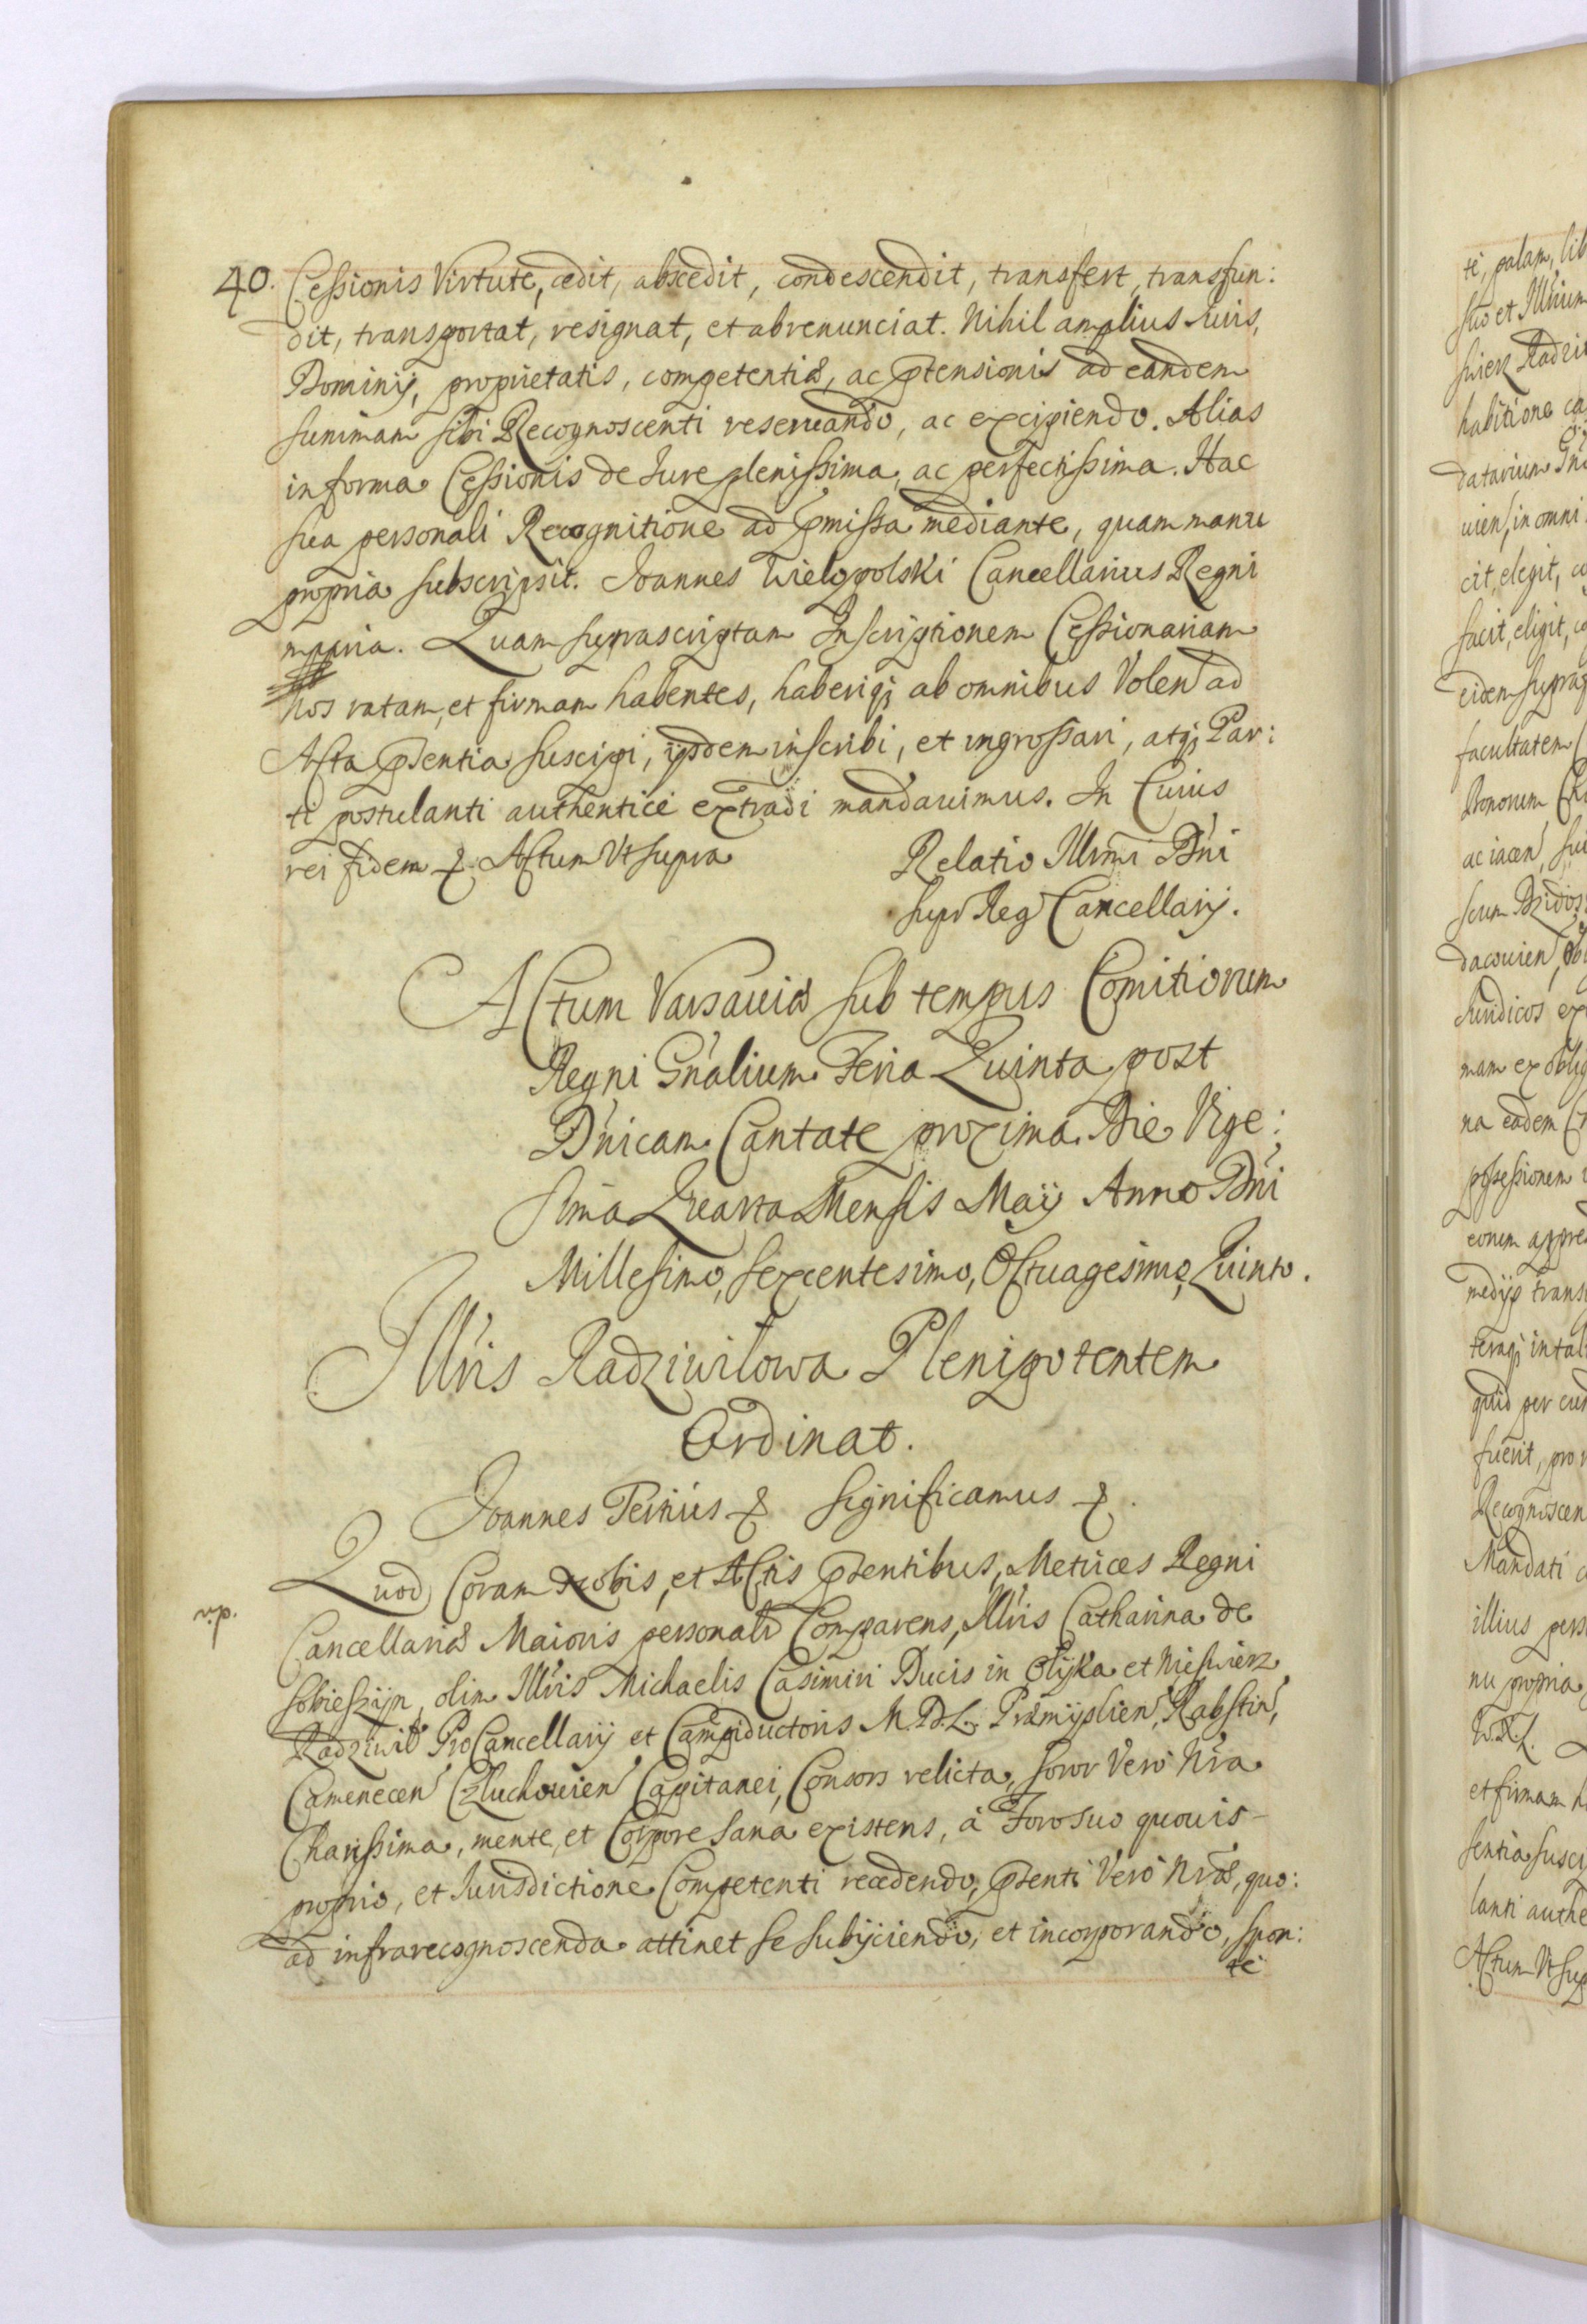 40. Cessionis Virtute, cedit, abscedit, condescendit, transfert, transfun:
dit, transportat, resignat, et abrenunciat. Nihil amplius Iuris,
Dominij, proprietatis, competentiæ, ac ptensionis ad eandem
summam sibi Recognoscenti reseruando, ac excipiendo. Alias
in forma Cessionis de Iure plenissima, ac perfectissima. Hac
sua personali Recognitione ad pmissa mediante, quam manu
propria subscripsit. Joannes Wielopolski Cancellarius Regni
mppria. Quam suprascriptam Inscriptionem Cessionariam
Nos ratam, et firmam habentes, haberiq; ab omnibus Volen ad
Acta psentia suscipi, ijsdem inscribi, et ingrossari, atq; Par:
ti postulanti authenticè extradi mandauimus. In Cuius
rei fidem &. Actum Vt supra
Relatio Illmi Dni
supr Reg Cancellarij.
Actum Varsauiæ sub tempus Comitiorum
Regni Gnalium Feria Quinta post
Dnicam Cantate proxima Die Vige:
sima Quarta Mensis Maij Anno Dni
Millesimo, sexcentesimo, Octuagesimo, Quinto.
Illris Radziwiłowa Plenipotentem
Ordinat.
Joannes Tertius & significamus &.
Quod Coram Nobis, et Actis psentibus, Metrices Regni
Cancellariæ Maioris personalr Comparens, Illris Catharina de
v.p.
Sobieszijn, olim Illris Michaelis Casimiri Ducis in Ołyka et Nieswierz
Radziwił ProCancellarij et Campiductoris M.D.L. Præmÿslien, Rabstin,
Camenecen Człuchouien Capitanei, Consors relicta, soror Verò Nra
Charissima, mente, et Corpore sana existens, à Foro suo quouis
proprio, et Iurisdictione Competenti recedendo, psenti Verò Nræ, quo:
ad infrarecognoscenda attinet se subijciendo, et incorporando, spon:
te